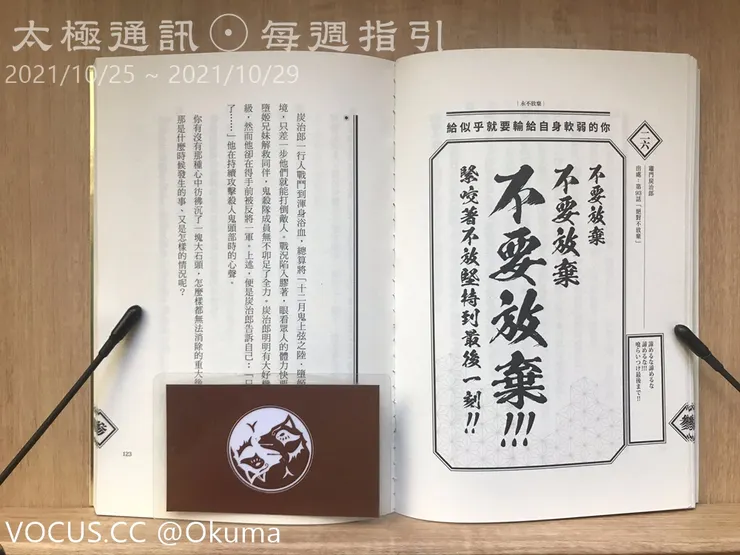 太極通訊⊙每週指引
2021/10/25 ~ 2021/10/29
永不放棄
給似乎就要輸給自身軟弱的你
二六
竈門炭治郎
出處－第93話「絕對不放棄」
諦めるな諦めるな
諦めるな!!!
喰らいつけ最後まで!!
不要放棄
不要放棄
不要放棄!!!
緊咬著不放堅持到最後一刻!!
炭治郎一行人戰鬥到渾身浴血，總算將「十二月鬼上弦之陸，墮姬
境，只差一步他們就能打倒敵人。戰況陷入膠著，眼看眾人的體力快
墮姬兄妹解救同伴，鬼殺隊成員無不卯足了全力。炭治郎明明有大好
級，然而他卻在得手前被反將一軍。上述，便是炭治郎告訴自己：「
了⋯⋯」他在持續攻擊殺人鬼頭部時的心聲。
你有沒有那種心中彷彿沉了一塊大石頭，怎麼樣都無法消除的重大
那是什麼時候發生的事，又是怎樣的情況呢？
參
參
123
VOCUS.CC @Okuma